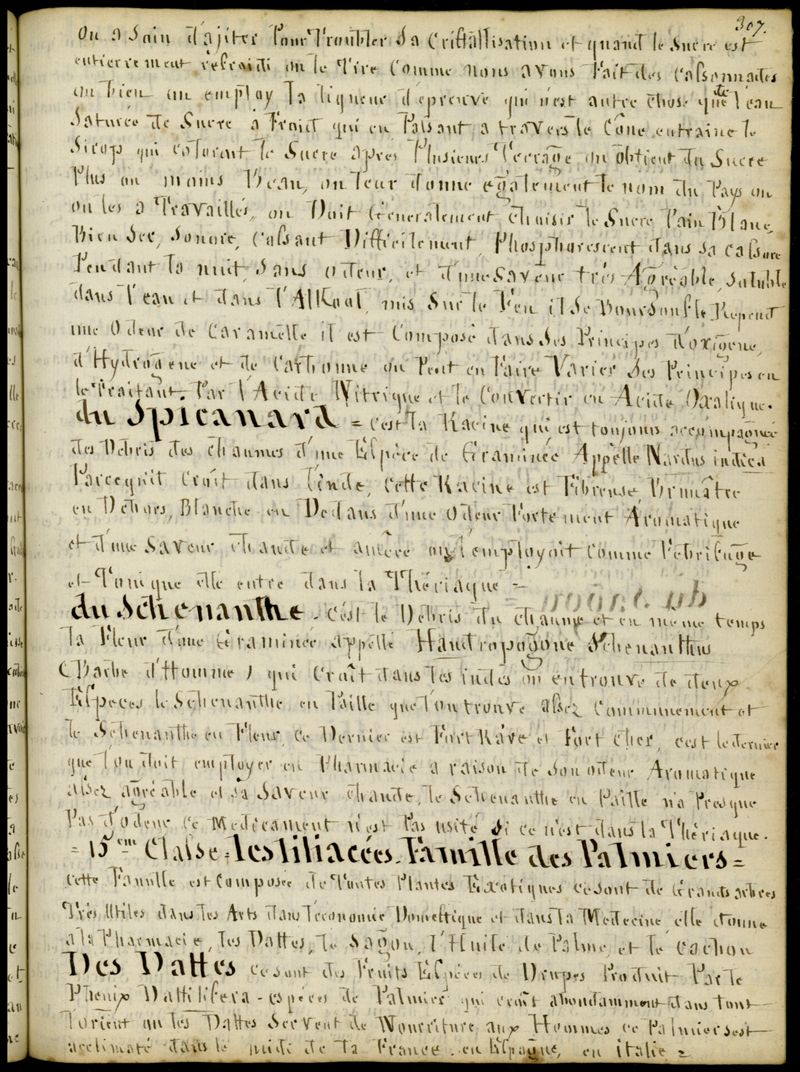 307.
On a Soin d'agiter Pour Troubler Sa Cristallisation et quand le Sucre est
entierrement refroidi on le Tire Comme nous avons Fait des Cassonnades
ou bien on employ la liqueur d'epreuve qui n'est autre chose que de l'eau
Saturée de Sucre a Froid qui en Passant a travers le Cône entraine le
Sirop qui colorait le Sucre après Plusieurs Terrage on obtient du Sucre
Plus ou moins Beau, on leur donne egalement le nom du Pays ou
on les a Travaillés, on Doit Généralement choisir le Sucre Pain Blanc,
Bien Sec, Sonore, Cassant Difficilement, Phosphorescent dans sa cassure
Pendant la nuit, Sans odeur, et d'une saveur très Agréable, Soluble
dans l'eau et dans l'Alkool, mis Sur le Feu il Se Boursoufle Repend
une Odeur de Caramelle il est Composé dans Ses Principes d'oxigene,
d'Hydrogene et de Carbonne on Peut en Faire Varier Ses Principes en
le Traitant Par l'Acide Nitrique et le Convertir en Acide Oxalique.
du Spicanard = c'est la Racine qui est toujours accompagnée
des Debris des chaumes d'une Espèce de Graminée Appellé Nardus indica
Parcequ'il Croit dans l'inde, Cette Racine est Fibreuse, Brunâtre
en Dehors, Blanche en Dedans d'une Odeur Fortement Aromatique
et d'une Saveur chaude et amère on l'employoit Comme Febrifuge
et Tonique elle entre dans la Thériaque =
du Schenanthe - C'est le Debris du Chaume et en même temps
la Fleur d'une Graminée appellé Handropogone Schenanthus
(Barbe d'Homme) qui Croit dans les indes on en trouve de deux
Espèces le Schenanthe en Paille que l'on trouve assez Communement et
le Schenanthe en Fleur, ce Dernier est Fort Rare et Fort Cher, c'est le dernier
que l'on doit employer en Pharmacie a raison de Son odeur Aromatique
assez agréable et sa Saveur chaude, le Schenanthe en Paille n'a Presque
Pas d'odeur ce Medicament n'est Pas usité Si ce n'est dans la Thériaque.
= 15eme Classe = les liliacées. Famille des Palmiers =
Cette Famille est Composée de Toutes Plantes Exotiques ce sont de Grands arbres
Très Utiles dans les Arts dans l'économie Domestique et dans la Medecine elle donne
a la Pharmacie, les Dattes, le Sagou, l'Huile de Palme, et le Cachou
Des Dattes ce sont des Fruits Espèces de Drupes Produit Par le
Phenix Dattilifera - espèces de Palmier qui croit abondamment dans tous
l'orient ou les Dattes Servent de Nourriture aux Hommes ce Palmiers est
acclimaté dans le midi de la France. en Espagne, en italie =